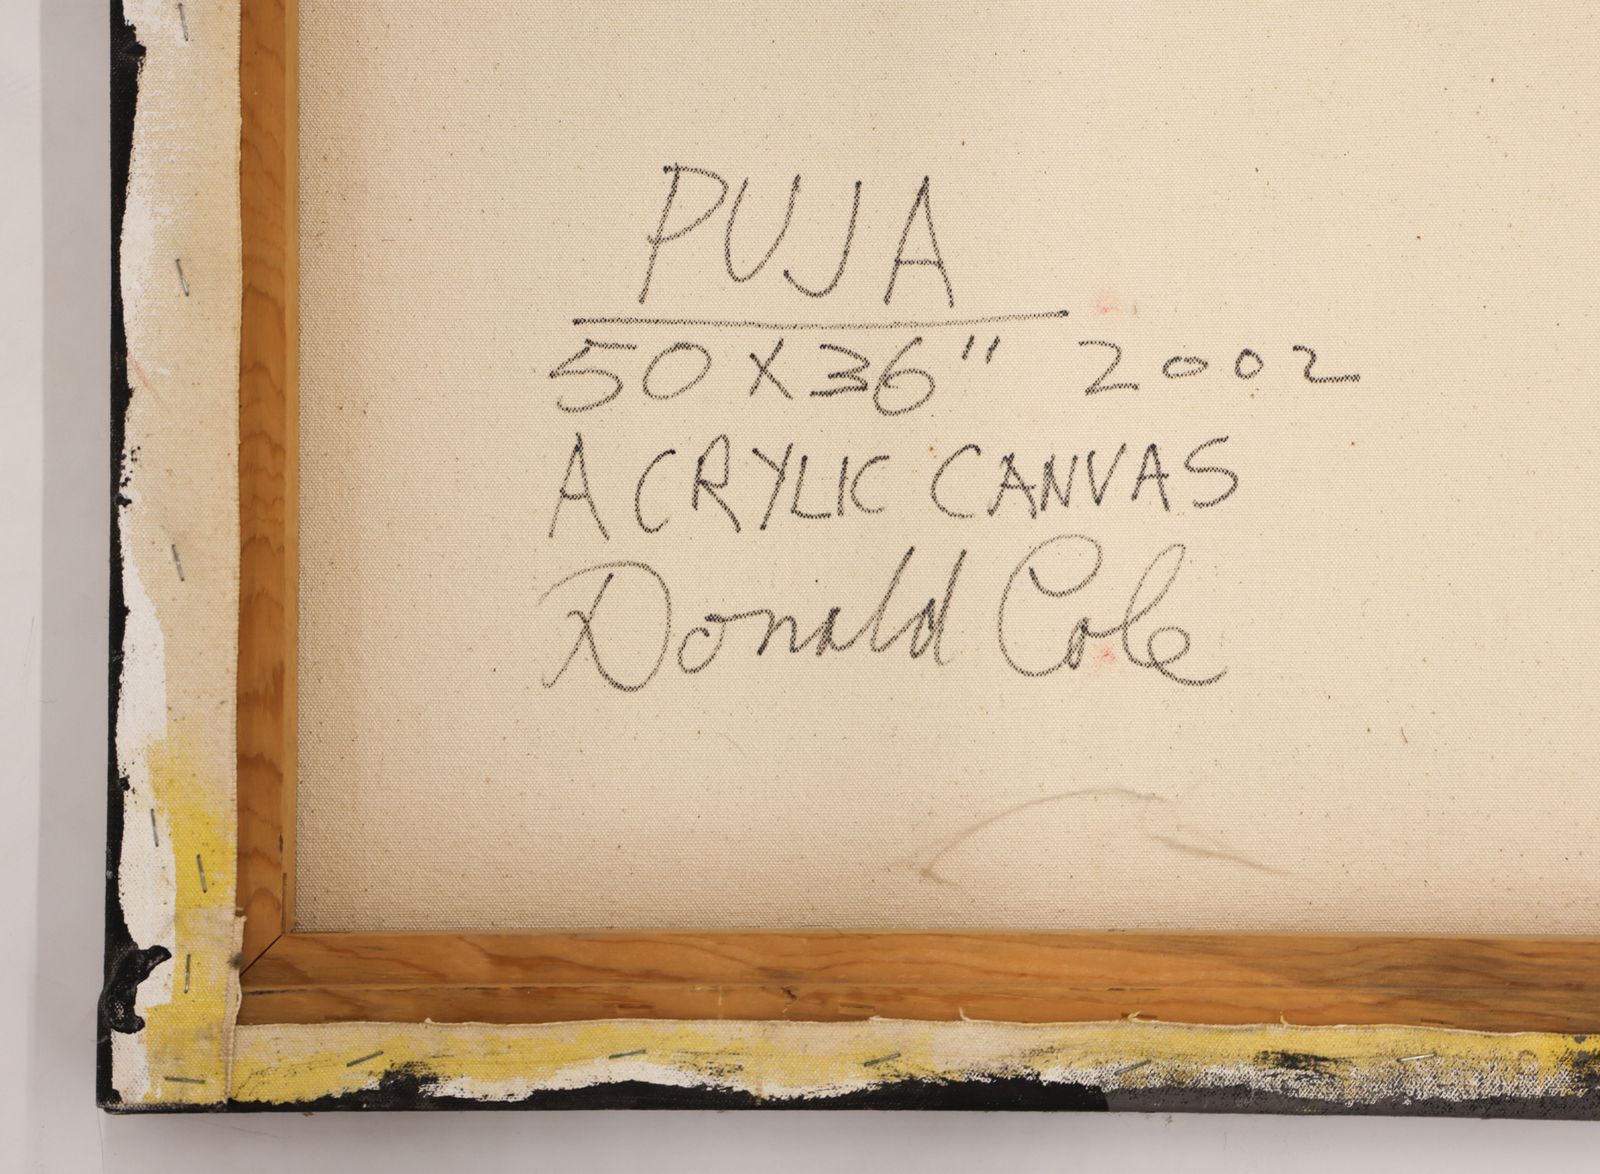 PUJA
50 X 36" 2002
ACRYLIC CANVAS
Donald Cole